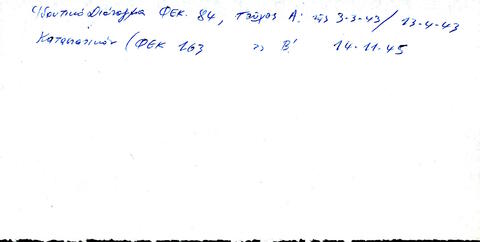 Ιδρυτικό Διάταγμα ΦΕΚ. 84, Τεύχος Α: της 3-3-43/13-4-43
Καταστατικόν (ΦΕΚ 163 〃 Β' 14-11-45